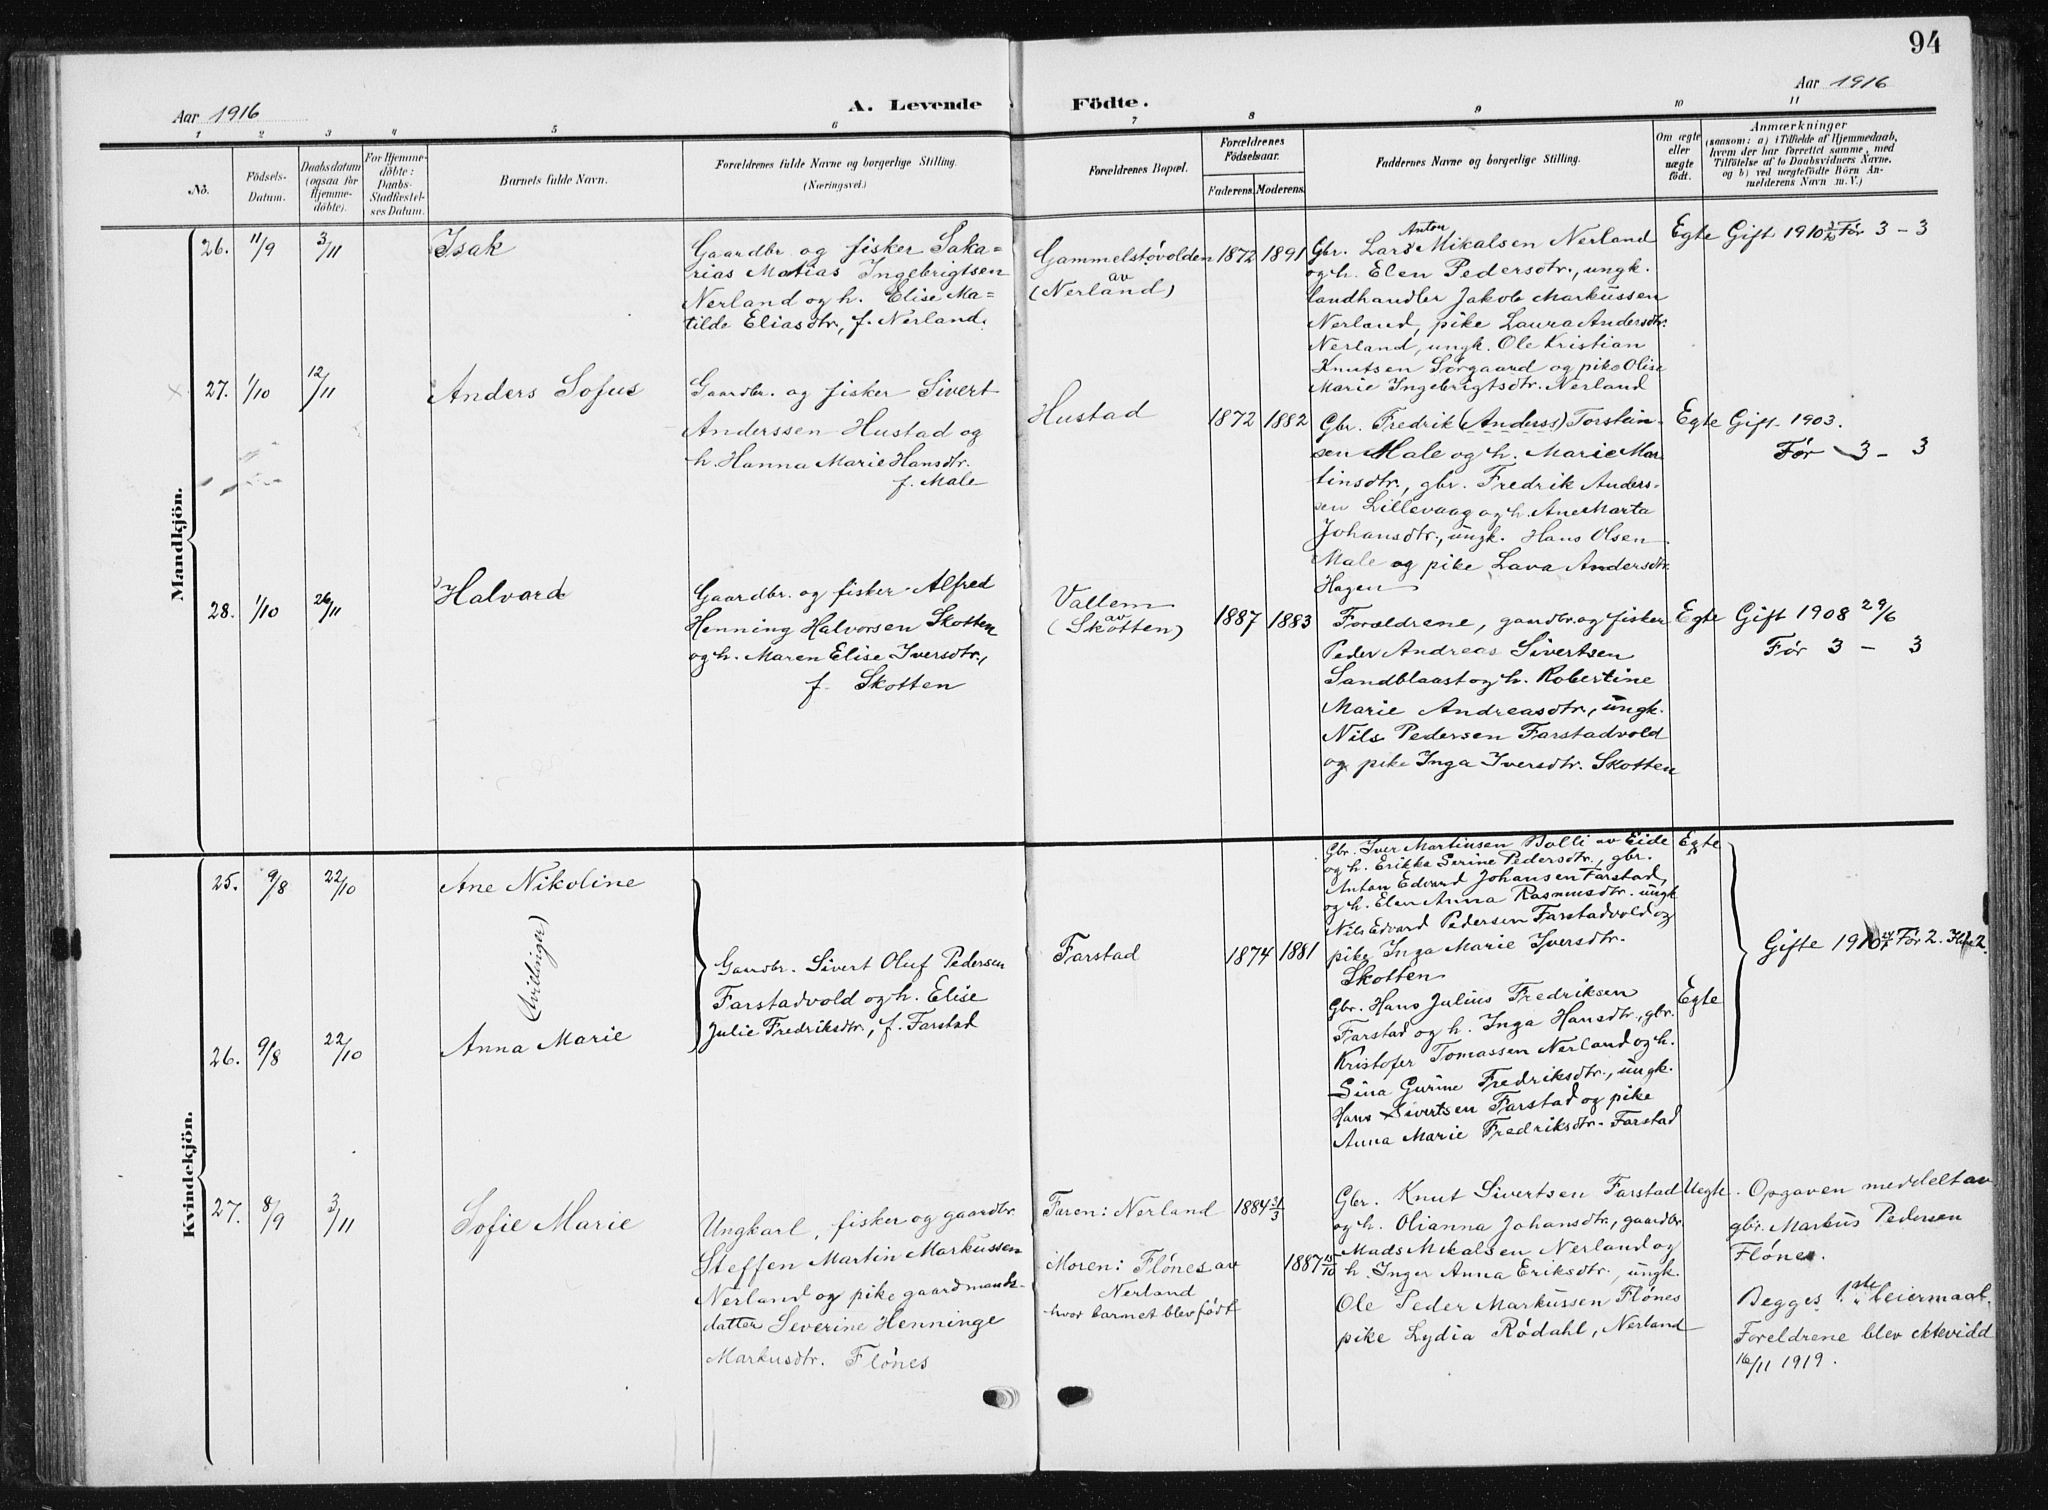 94
Aar 1916
A. Levende Födte.
Aar 1916
1 2 3 4 5 6 7 8 9 10 11
No.
Födsels-
Datum.
Daabsdatum
(ogsaa for
Hjemme-
döbte).
For Hjemme-
döbte:
Daabs-
Stadfæstel-
ses Datum.
Barnets fulde Navn.
Forældrenes fulde Navne og borgerlige Stilling.
(Næringsvei.)
Forældrenes Bopæl.
Forældrenes
Födselsaar.
Faderens. Moderens.
Faddernes Navne og borgerlige Stilling.
Om ægte
eller
uægte
födt.
Anmærkninger
(saasom: a) i Tilfælde af Hjemmedaab,
hvem der har forrettet samme, med
Tilföielse af to Daabsvidners Navne,
og b) ved uægtefödte Börn An-
melderens Navn m. V.)
Mandkjön.
26. 11/9 3/11 Isak
Gaardbr. og fisker Saka=
rias Matias Ingebrigtsen
Nerland og h. Elise Ma=
tilde Eliasdtr., f. Nerland.
Gammelstøvolden
av
(Nerland)
1872 1891
Anton
Gbr. Lars Mikalsen Nerland
og h. Elen Pedersdtr., ungk.
landhandler Jakob Markussen
Nerland, pike Laura Andersdtr.
Nerland, ungk. Ole Kristian
Knutsen Sørgaard og pike Olise
Marie Ingebrigtsdtr. Nerland
Egte Gift 1910 Før 3 - 3
27. 1/10 12/11 Anders Sofus
Gaardbr. og fisker Sivert
Anderssen Hustad og
h. Hanna Marie Hansdtr.
f. Male
Hustad
1872 1882
Gbr. Fredrik (Anderss) Torstein-
sen Male og h. Marie Mar-
tinsdtr., gbr. Fredrik Anders-
sen Lillevaag og h. Ane Marta
Johansdtr., ungk. Hans Olsen
Male og pike Lava Andersdtr.
Hagen
Egte Gift 1903.
Før 3 - 3
28. 1/10 26/11 Halvard
Gaardbr. og fisker Alfred
Henning Halvorsen Skotten
og h. Maren Elise Iversdtr.,
f. Skotten
Vallem
av
(Skotten)
1887 1883
Forældrene, gardbr. og fisker
Peder Andreas Sivertsen
Sandblaast og h. Robertine
Marie Andreasdtr., ungk.
Nils Pedersen Farstadvold
og pike Inga Iversdtr. Skotten
Egte Gift 1908 29/6
Før 3 - 3
Kvindekjön.
25. 9/8 22/10 Ane Nikoline
(tvillinger)
26. 9/8 22/10 Anna Marie
Gaardbr. Sivert Oluf Pedersen
Farstadvold og h. Elise
Julie Fredriksdtr., f. Farstad
Farstad
1874 1881
Gbr. Iver Martinsen Bolli av Eide
og h. Erikka Serine Pedersdtr., gbr.
Anton Edvard Johansen Farstad,
og h. Elen Anna Rasmusdtr. ungk
Nils Edvard Pedersen Farstadvold og
pike Inga Marie Iversdtr.
Skotten
Egte
Gbr. Hans Julius Fredriksen
Farstad og h. Inga Hansdtr., gbr.
Kristofer Tomassen Nerland og h.
Sina Gurine Fredriksdtr., ungk.
Hans Sivertsen Farstad og pike
Anna Marie Fredriksdtr. Farstad
Egte
Gifte 1910 Før 2.
27. 8/9 3/11 Sofie Marie
Ungkarl, fisker og gaardbr.
Steffen Martin Markussen
Nerland og pike gaardmands-
datter Severine Henninge
Markusdtr. Flönes
Faren: Nerland
Moren: Flönes av
Nerland
hvor barnet blev født
1884 31/3
1887 15/10
Gbr. Knut Sivertsen Farstad
og h. Olianna Johansdtr., gaardbr.
Mads Mikalsen Nerland og
h. Inger Anna Eriksdtr., ungk.
Ole Peder Markussen Flönes
pike Lydia Rödahl, Nerland
Uegte.
Opgaven meddelt av
gbr. Markus Pedersen
Flönes.
Begges 1ste leiermaal.
Foreldrene blev ektevidd
16/11 1919.